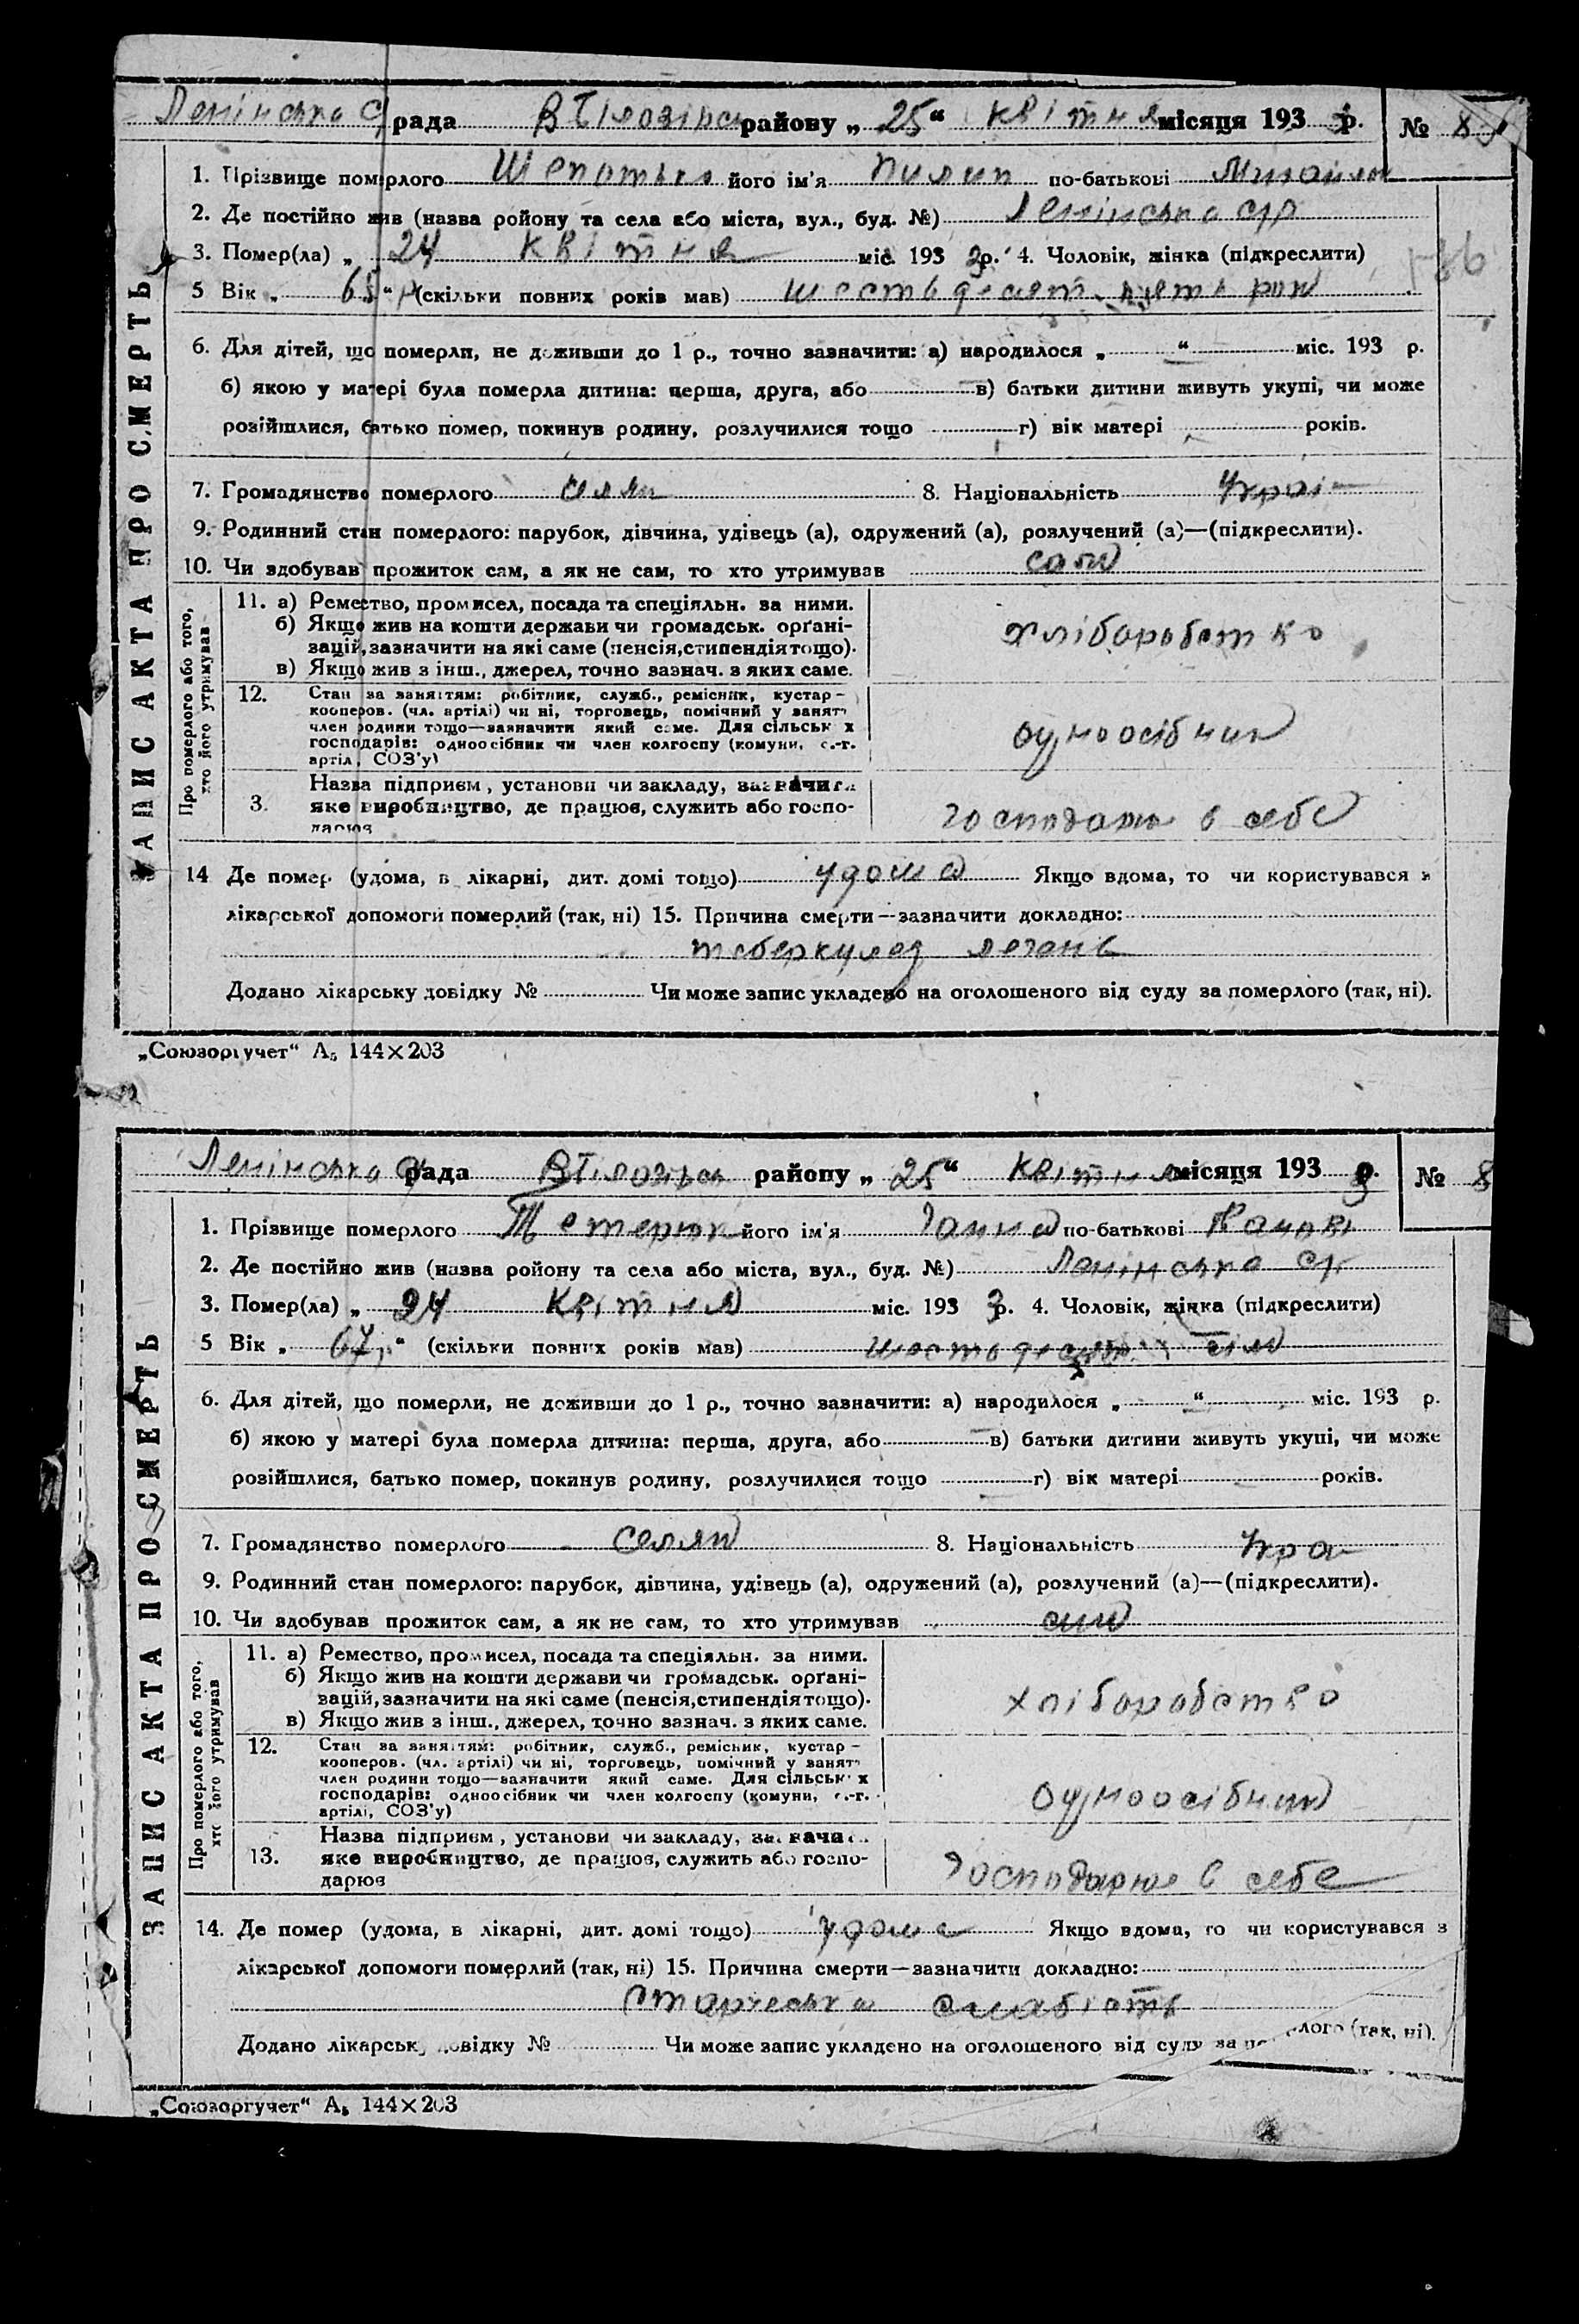 Ленінська С/рада В Білозірськ району „ 25 “ квітня місяця 193 3 р. №
1. Прізвище померлого Шепотько його ім'я Пилип по-батькові Михайлов
2. Де постійно жив (назва ройону та села або міста, вул., буд. №) Ленінська с/р
3. Помер(ла) „ 24 квітня міс. 193 3 р. 4. Чоловік, жінка (підкреслити)
5 Вік „ 65 “ (скільки повних років мав) шістьдесят пять рок
6. Для дітей, що померли, не доживши до 1 р., точно зазначити: а) народилося „ “ міс. 193 р.
б) якою у матері була померла дитина: перша, друга, або в) батьки дитини живуть укупі, чи може
розійшлися, батько помер, покинув родину, розлучилися тощо г) вік матері років.
7. Громадянство померлого селян 8. Національність Украі
9. Родинний стан померлого: парубок, дівчина, удівець (а), одружений (а), розлучений (а)—(підкреслити).
10. Чи здобував прожиток сам, а як не сам, то хто утримував сам
ЗАПИС АКТА ПРО СМЕРТЬ
Про померлого або того,
хто його утримував
11. а) Ремество, промисел, посада та спеціяльн. за ними.
б) Якщо жив на кошти держави чи громадськ. орґані-
зацій, зазначити на які саме (пенсія, стипендія тощо).
в) Якщо жив з інш., джерел, точно зазнач. з яких саме.
хліборобство
12. Стан за заняттям: робітник, служб., ремісник, кустар –
кооперов. (чл. артілі) чи ні, торговець, помічний у занятт
член родини тощо—зазначити який саме. Для сільськ х
господарів: одноосібник чи член колгоспу (комуни, с.-г.
артіл, СОЗ'у)
одноосібник
3. Назва підприєм, установи чи закладу, зазначити
яке виробництво, де працює, служить або госпо-
дарює
господарює в себе
14 Де помер (удома, в лікарні, дит. домі тощо) удома Якщо вдома, то чи користувався з
лікарської допомоги померлий (так, ні) 15. Причина смерти—зазначити докладно:
туберкулез легень
Додано лікарську довідку № Чи може запис укладено на оголошеного від суду за померлого (так, ні).
„Союзоргучет“ А₅ 144×203
Ленінська С/рада В Білозірськ району „ 25 “ квітня місяця 193 3 р. №
1. Прізвище померлого Тетерюк його ім'я Ганна по-батькові
2. Де постійно жив (назва ройону та села або міста, вул., буд. №) Ленінська с/р
3. Помер(ла) „ 24 квітня міс. 193 3 р. 4. Чоловік, жінка (підкреслити)
5 Вік „ 67 “ (скільки повних років мав) шістьдесят сім
6. Для дітей, що померли, не доживши до 1 р., точно зазначити: а) народилося „ “ міс. 193 р.
б) якою у матері була померла дитина: перша, друга, або в) батьки дитини живуть укупі, чи може
розійшлися, батько помер, покинув родину, розлучилися тощо г) вік матері років.
7. Громадянство померлого селян 8. Національність Укра
9. Родинний стан померлого: парубок, дівчина, удівець (а), одружений (а), розлучений (а)—(підкреслити).
10. Чи здобував прожиток сам, а як не сам, то хто утримував син
ЗАПИС АКТА ПРО СМЕРТЬ
Про померлого або того,
хто його утримував
11. а) Ремество, промисел, посада та спеціяльн. за ними.
б) Якщо жив на кошти держави чи громадськ. орґані-
зацій, зазначити на які саме (пенсія, стипендія тощо).
в) Якщо жив з інш., джерел, точно зазнач. з яких саме.
хліборобство
12. Стан за заняттям: робітник, служб., ремісник, кустар –
кооперов. (чл. артілі) чи ні, торговець, помічний у занятт
член родини тощо—зазначити який саме. Для сільськ х
господарів: одноосібник чи член колгоспу (комуни, с.-г.
артілі, СОЗ'у)
одноосібник
13. Назва підприєм, установи чи закладу, зазначити
яке виробництво, де працює, служить або госпо-
дарює
господарює в себе
14. Де помер (удома, в лікарні, дит. домі тощо) удома Якщо вдома, то чи користувався з
лікарської допомоги померлий (так, ні) 15. Причина смерти—зазначити докладно:
старческа слабість
Додано лікарськ довідку № Чи може запис укладено на оголошеного від суду за померлого (так, ні).
„Союзоргучет“ А₅ 144×203